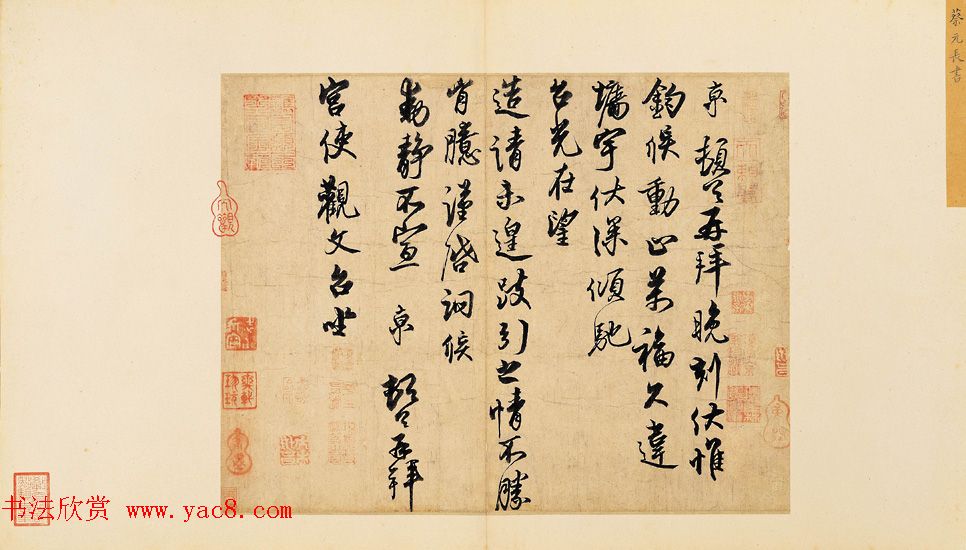 蔡元長書
京頓首再拜晚刻伏惟
鈞候動止萬福久違
墉宇伏深傾馳
台光在望
造請未遑跂引之情不勝
胷臆謹啓詞候
動靜不宣京頓首再拜
宮使觀文台坐
书法欣赏 www.yac8.com